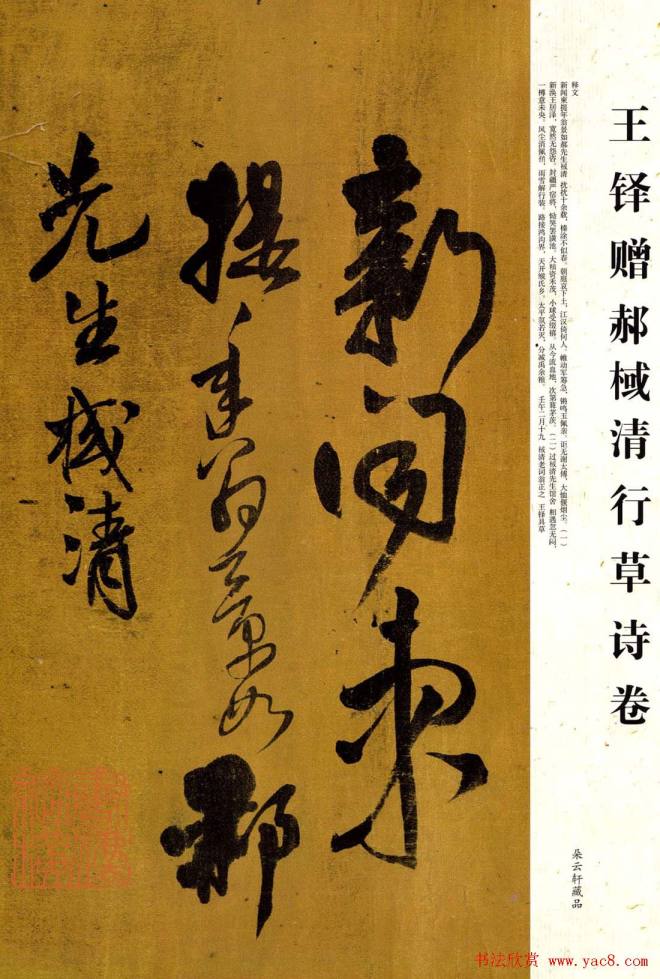 王铎赠郝棫清行草诗卷
释文
新闻束提年翁景如郝先生棫清 扰扰十余载，榛涂不似春。朝庭哀下土，江汉倚何人。帷动军筹急，锵鸣玉佩亲。讵无谢太傅，大恤偃烟尘。（一）
新涣王居泽，寛然无怨咨。封疆严宿将，恸哭罢潢池。大精资禾茂，小球受缙禧。从今流血地，次第葺茅茨。（二）过棫清先生馆舍 相遇忽无闷，
一樽意未央。风尘消佩剑，雨雪解行装。路接鸿沟界，天开缑氏乡。太平氛若灭，分减禹余粮。 壬午二月十九 棫清老词翁正之 王铎具草
朵云轩藏品
新闻束
提年翁景如郝
先生棫清
书法欣赏 www.yac8.com